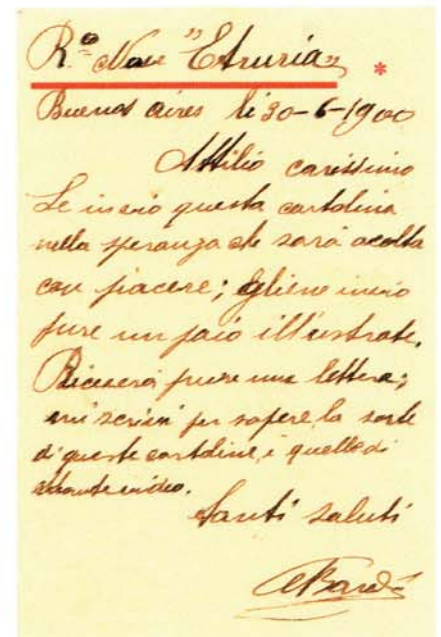 Rª Nave "Etruria" *
Buenos Aires li 30-6-1900
Attilio carissimo
Le invio questa cartolina
nella speranza che sarà acolta
con piacere; gliene invio
pure un paio illustrate.
Riceverà pure una lettera;
mi scrivi per sapere la sorte
di queste cartoline, i quelle di
Santi saluti